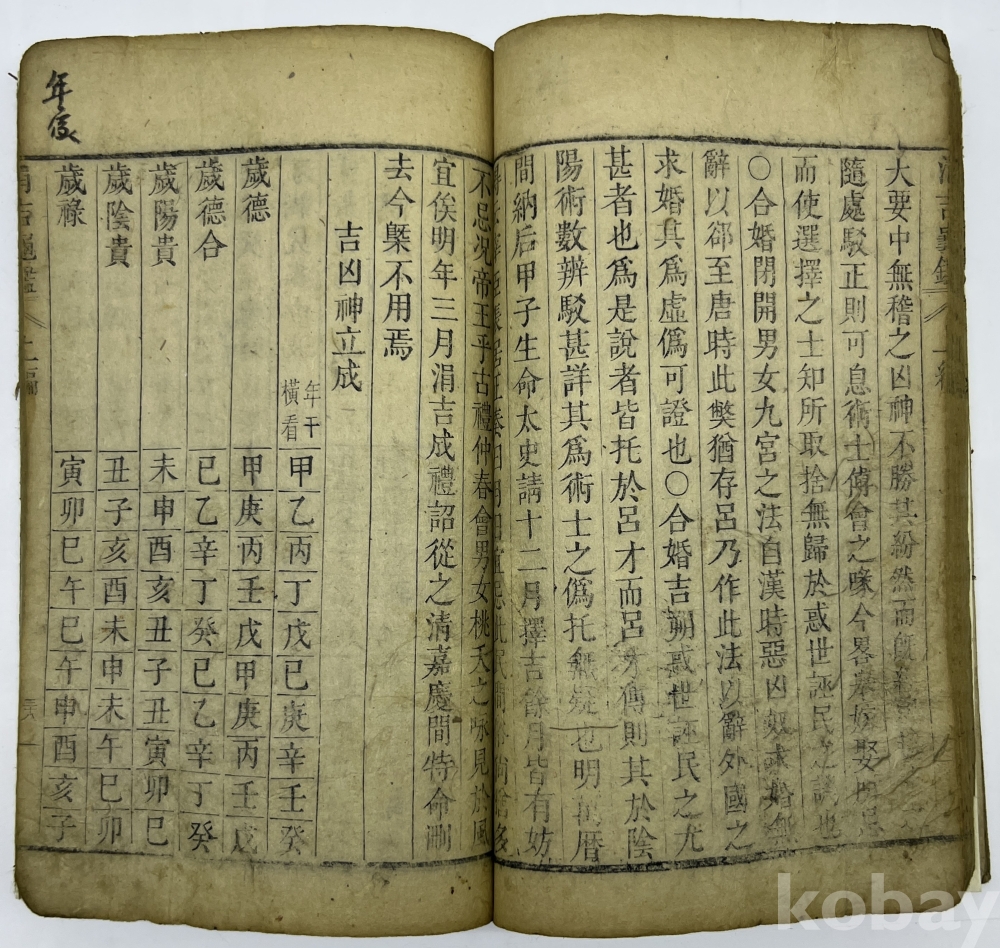 大要中無稽之凶神不勝其紛然而
隨處駁正則可息術士傅會之喙今畧舉嫁娶
而使選擇之士知所取捨無歸於惑世誣民之說也
○合婚閉開男女九宮之法自漢時惡凶奴求婚無
辭以郤至唐時此獘猶存呂乃作此法以辭外國之
求婚其爲虛僞可證也○合婚吉朔惑世誣民之尤
甚者也爲是說者皆托於呂才而呂才傳則其於陰
陽術數辨駁甚詳其爲術士之僞托無疑也明萬曆
間納后甲子生命太史請十二月擇吉餘月皆有妨
不忌况帝王乎古禮仲春會男女桃夭之咏見於風
宜俟明年三月涓吉成禮詔從之清嘉慶間特命刪
去今槩不用焉
吉凶神立成
年干橫看 甲乙丙丁戊已庚辛壬癸
歲德 甲庚丙壬戊甲庚丙壬戊
歲德合 已乙辛丁癸已乙辛丁癸
歲陽貴 未申酉亥丑子丑寅卯巳
歲陰貴 丑子亥酉未申未午巳卯
歲祿 寅卯巳午巳午申酉亥子
年良
kobay